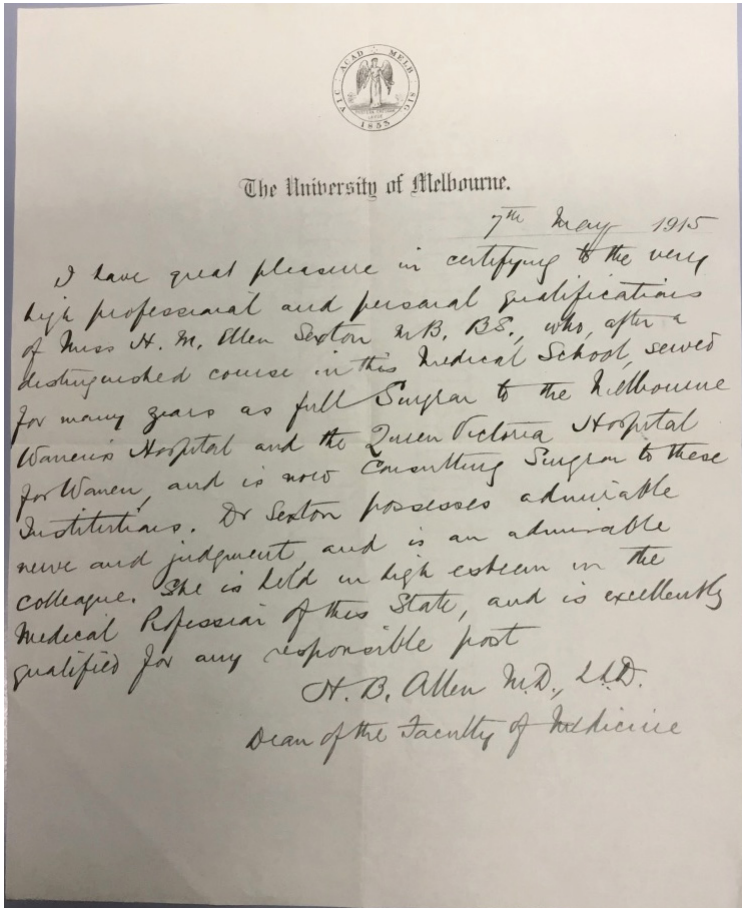 VIC ACAD MELB SIG
1855
The University of Melbourne.
7th May 1915
I have great pleasure in certifying to the very
high professional and personal qualifications
of Miss H. M. Ellen Sexton M.B. BS., who, after a
distinguished course in this Medical School, served
for many years as full Surgeon to the Melbourne
Women's Hospital and the Queen Victoria Hospital
for Women, and is now Consulting Surgeon to these
Institutions. Dr Sexton possesses admirable
nerve and judgment, and is an admirable
colleague. She is held in high esteem in the
Medical Profession of this State, and is excellently
qualified for any responsible post
H. B. Allen M.D., LL.D.
Dean of the Faculty of Medicine